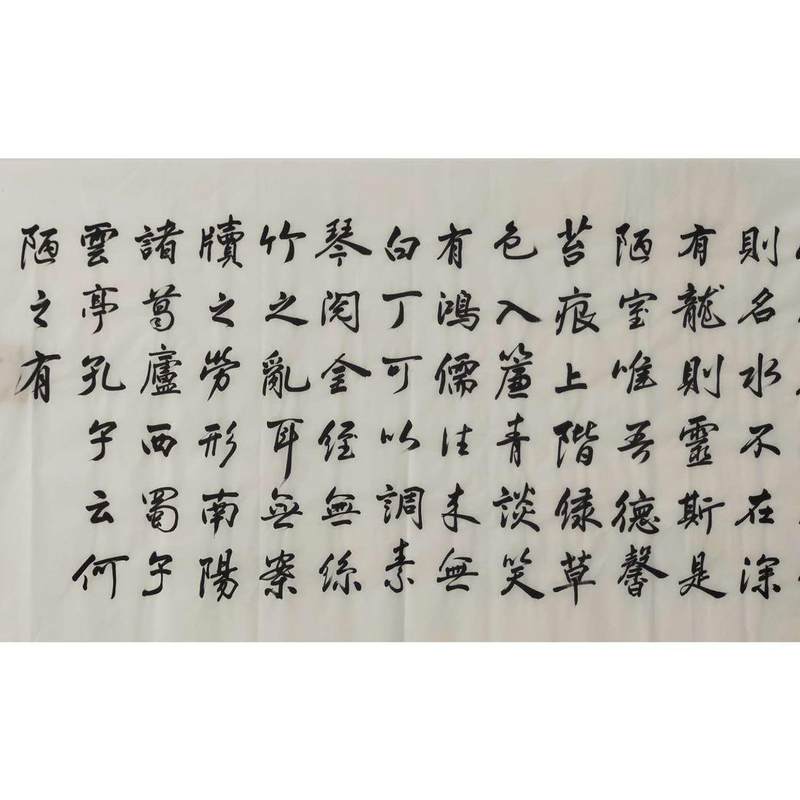 則名水不在深
有龍則靈斯是
陋室唯吾德馨
苔痕上階綠草
色入簾青談笑
有鴻儒往來無
白丁可以調素
琴閱金經無絲
竹之亂耳無案
牘之勞形南陽
諸葛廬西蜀子
雲亭孔子云何
陋之有